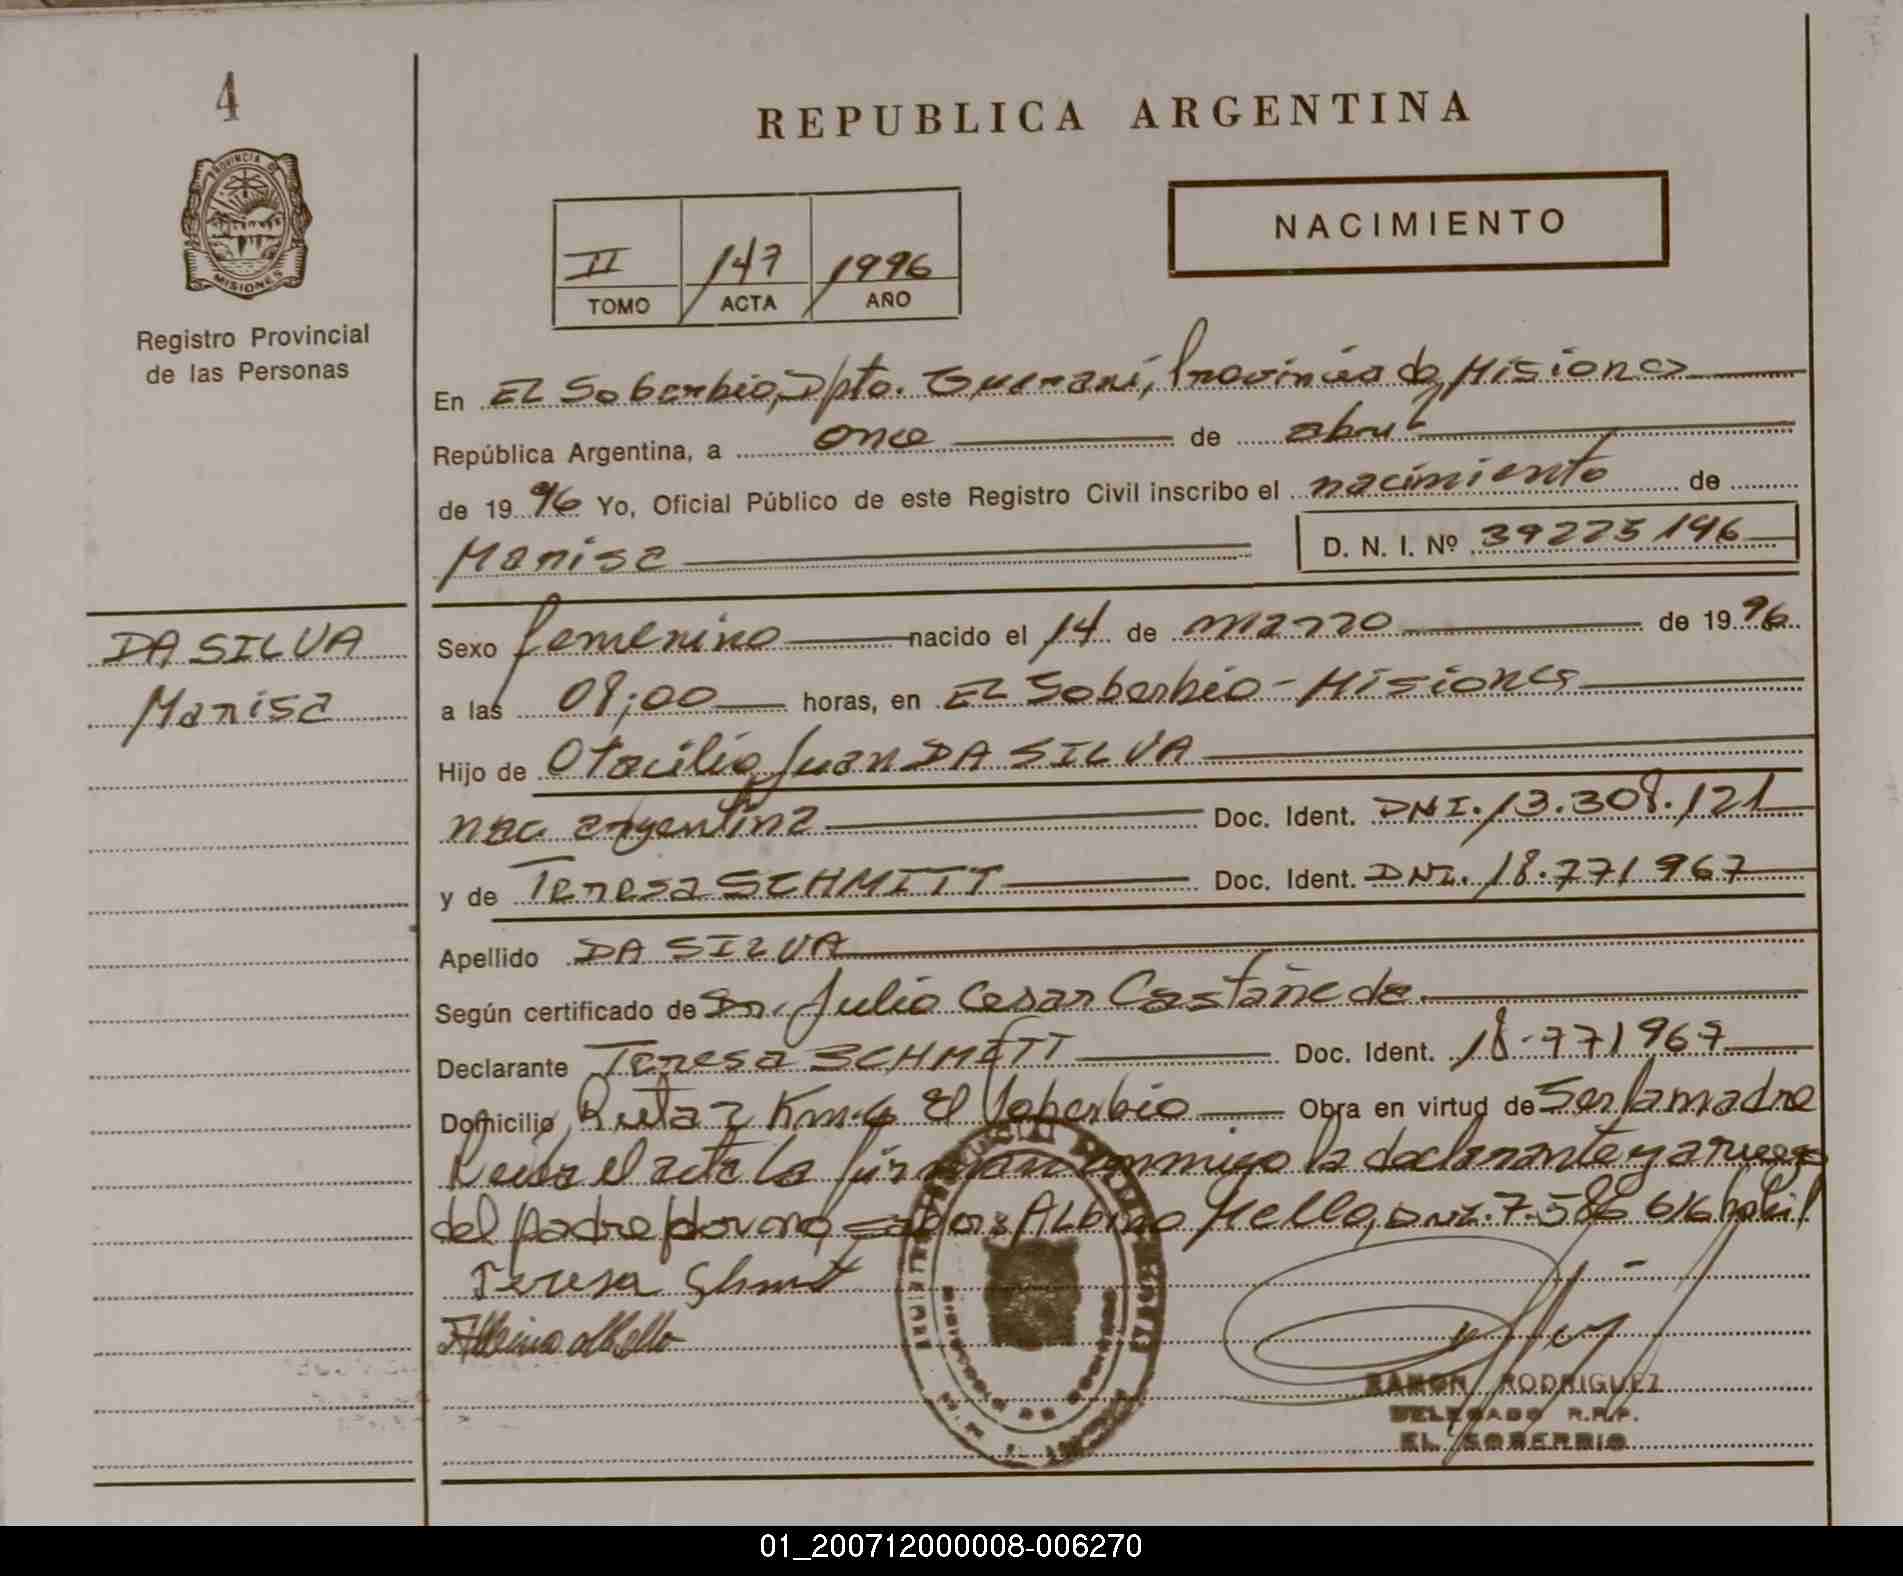 4
PROVINCIA DE
MISIONES
Registro Provincial
de las Personas
DA SILVA
Marisa
REPUBLICA ARGENTINA
II 147 1996
TOMO ACTA AÑO
NACIMIENTO
En El Soberbio, Dpto. Guarani, Provincia de Misiones
República Argentina, a once de abril
de 1996 Yo, Oficial Público de este Registro Civil inscribo el nacimiento de
Marisa D. N. I. Nº 39225196
Sexo femenino nacido el 14 de marzo de 1996
a las 08:00 horas, en El Soberbio - Misiones
Hijo de Otacilio Juan DA SILVA
nac argentina Doc. Ident. DNI. 13.308.121
y de Teresa SCHMITT Doc. Ident. DNI. 18.771967
Apellido DA SILVA
Según certificado de Dr. Julio Cesar Castañeda
Declarante Teresa SCHMITT Doc. Ident. 18.771967
Domicilio Ruta 2 Km. 6 El Soberbio Obra en virtud de Ser la madre
Leida el acta la firman conmigo la declarante y a ruego
del padre por no saber: Albino Mello, DNI. 7.586 616 habil
Teresa Shmit
Albino Mello
RAMON RODRIGUEZ
DELEGADO R.P.P.
EL SOBERBIO
01_200712000008-006270